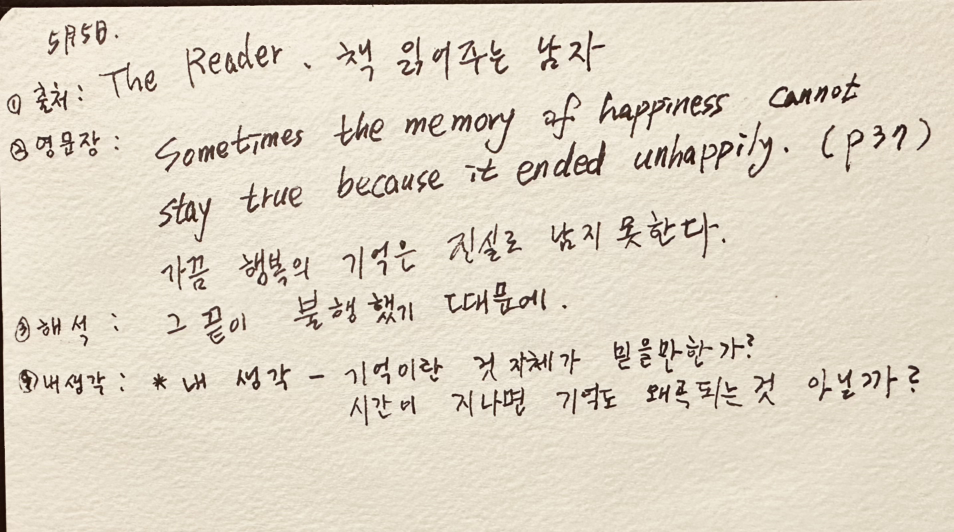 5月5日.
① 출처: The Reader. 책 읽어주는 남자
② 영문장: Sometimes the memory of happiness cannot
stay true because it ended unhappily. (p37)
가끔 행복의 기억은 진실로 남지 못한다.
③ 해석: 그 끝이 불행했기 때문에.
④ 내생각: * 내 생각 - 기억이란 것 자체가 믿을만한가?
시간이 지나면 기억도 왜곡되는 것 아닐까?